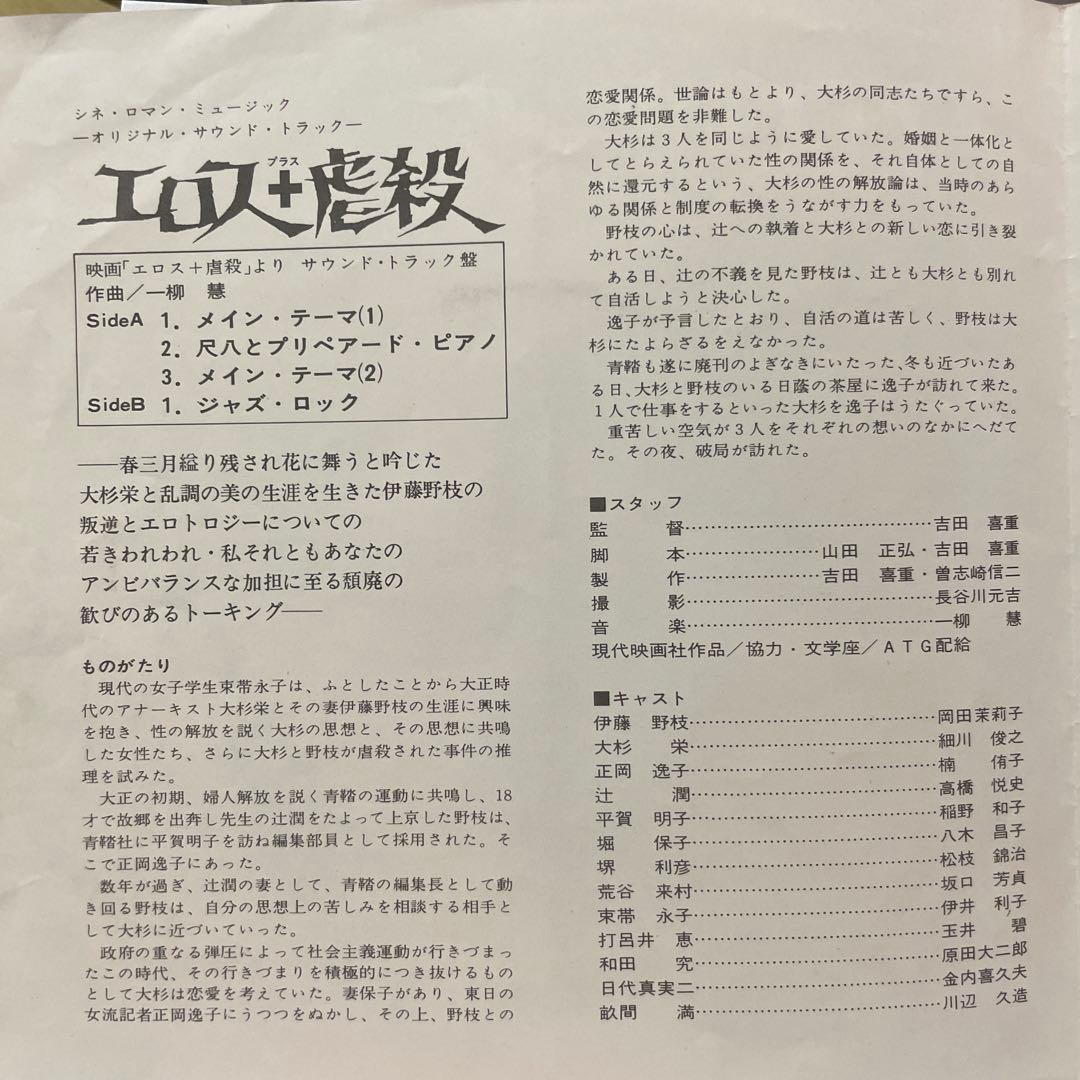 シネ・ロマン・ミュージック
―オリジナル・サウンド・トラック―
プラス
エロス+虐殺
映画「エロス+虐殺」より サウンド・トラック盤
作曲/一柳 慧
SideA 1. メイン・テーマ(1)
2. 尺八とプリペアード・ピアノ
3. メイン・テーマ(2)
SideB 1. ジャズ・ロック
――春三月縊り残され花に舞うと吟じた
大杉栄と乱調の美の生涯を生きた伊藤野枝の
叛逆とエロトロジーについての
若きわれわれ・私それともあなたの
アンビバランスな加担に至る頽廃の
歓びのあるトーキング――
ものがたり
現代の女子学生束帯永子は、ふとしたことから大正時
代のアナーキスト大杉栄とその妻伊藤野枝の生涯に興味
を抱き、性の解放を説く大杉の思想と、その思想に共鳴
した女性たち、さらに大杉と野枝が虐殺された事件の推
理を試みた。
大正の初期、婦人解放を説く青鞜の運動に共鳴し、18
才で故郷を出奔し先生の辻潤をたよって上京した野枝は、
青鞜社に平賀明子を訪ね編集部員として採用された。そ
こで正岡逸子にあった。
数年が過ぎ、辻潤の妻として、青鞜の編集長として動
き回る野枝は、自分の思想上の苦しみを相談する相手と
して大杉に近づいていった。
政府の重なる弾圧によって社会主義運動が行きづまっ
たこの時代、その行きづまりを積極的につき抜けるもの
として大杉は恋愛を考えていた。妻保子があり、東日の
女流記者正岡逸子にうつつをぬかし、その上、野枝との
恋愛関係。世論はもとより、大杉の同志たちですら、こ
の恋愛問題を非難した。
大杉は3人を同じように愛していた。婚姻と一体化と
してとらえられていた性の関係を、それ自体としての自
然に還元するという、大杉の性の解放論は、当時のあら
ゆる関係と制度の転換をうながす力をもっていた。
野枝の心は、辻への執着と大杉との新しい恋に引き裂
かれていた。
ある日、辻の不義を見た野枝は、辻とも大杉とも別れ
て自活しようと決心した。
逸子が予言したとおり、自活の道は苦しく、野枝は大
杉にたよらざるをえなかった。
青鞜も遂に廃刊のよぎなきにいたった、冬も近づいたあ
る日、大杉と野枝のいる日蔭の茶屋に逸子が訪れて来た。
1人で仕事をするといった大杉を逸子はうたぐっていた。
重苦しい空気が3人をそれぞれの想いのなかにへだて
た。その夜、破局が訪れた。
■スタッフ
監 督……………………………吉田 喜重
脚 本………………山田 正弘・吉田 喜重
製 作………………吉田 喜重・曽志崎信二
撮 影……………………………長谷川元吉
音 楽……………………………一柳 慧
現代映画社作品/協力・文学座/ATG配給
■キャスト
伊藤 野枝……………………………岡田茉莉子
大杉 栄……………………………細川 俊之
正岡 逸子……………………………楠 侑子
辻 潤……………………………高橋 悦史
平賀 明子……………………………稲野 和子
堀 保子……………………………八木 昌子
堺 利彦……………………………松枝 錦治
荒谷 来村……………………………坂口 芳貞
束帯 永子……………………………伊井 利子
打呂井 恵……………………………玉井 碧
和田 究……………………………原田大二郎
日代真実二……………………………金内喜久夫
畝間 満……………………………川辺 久造